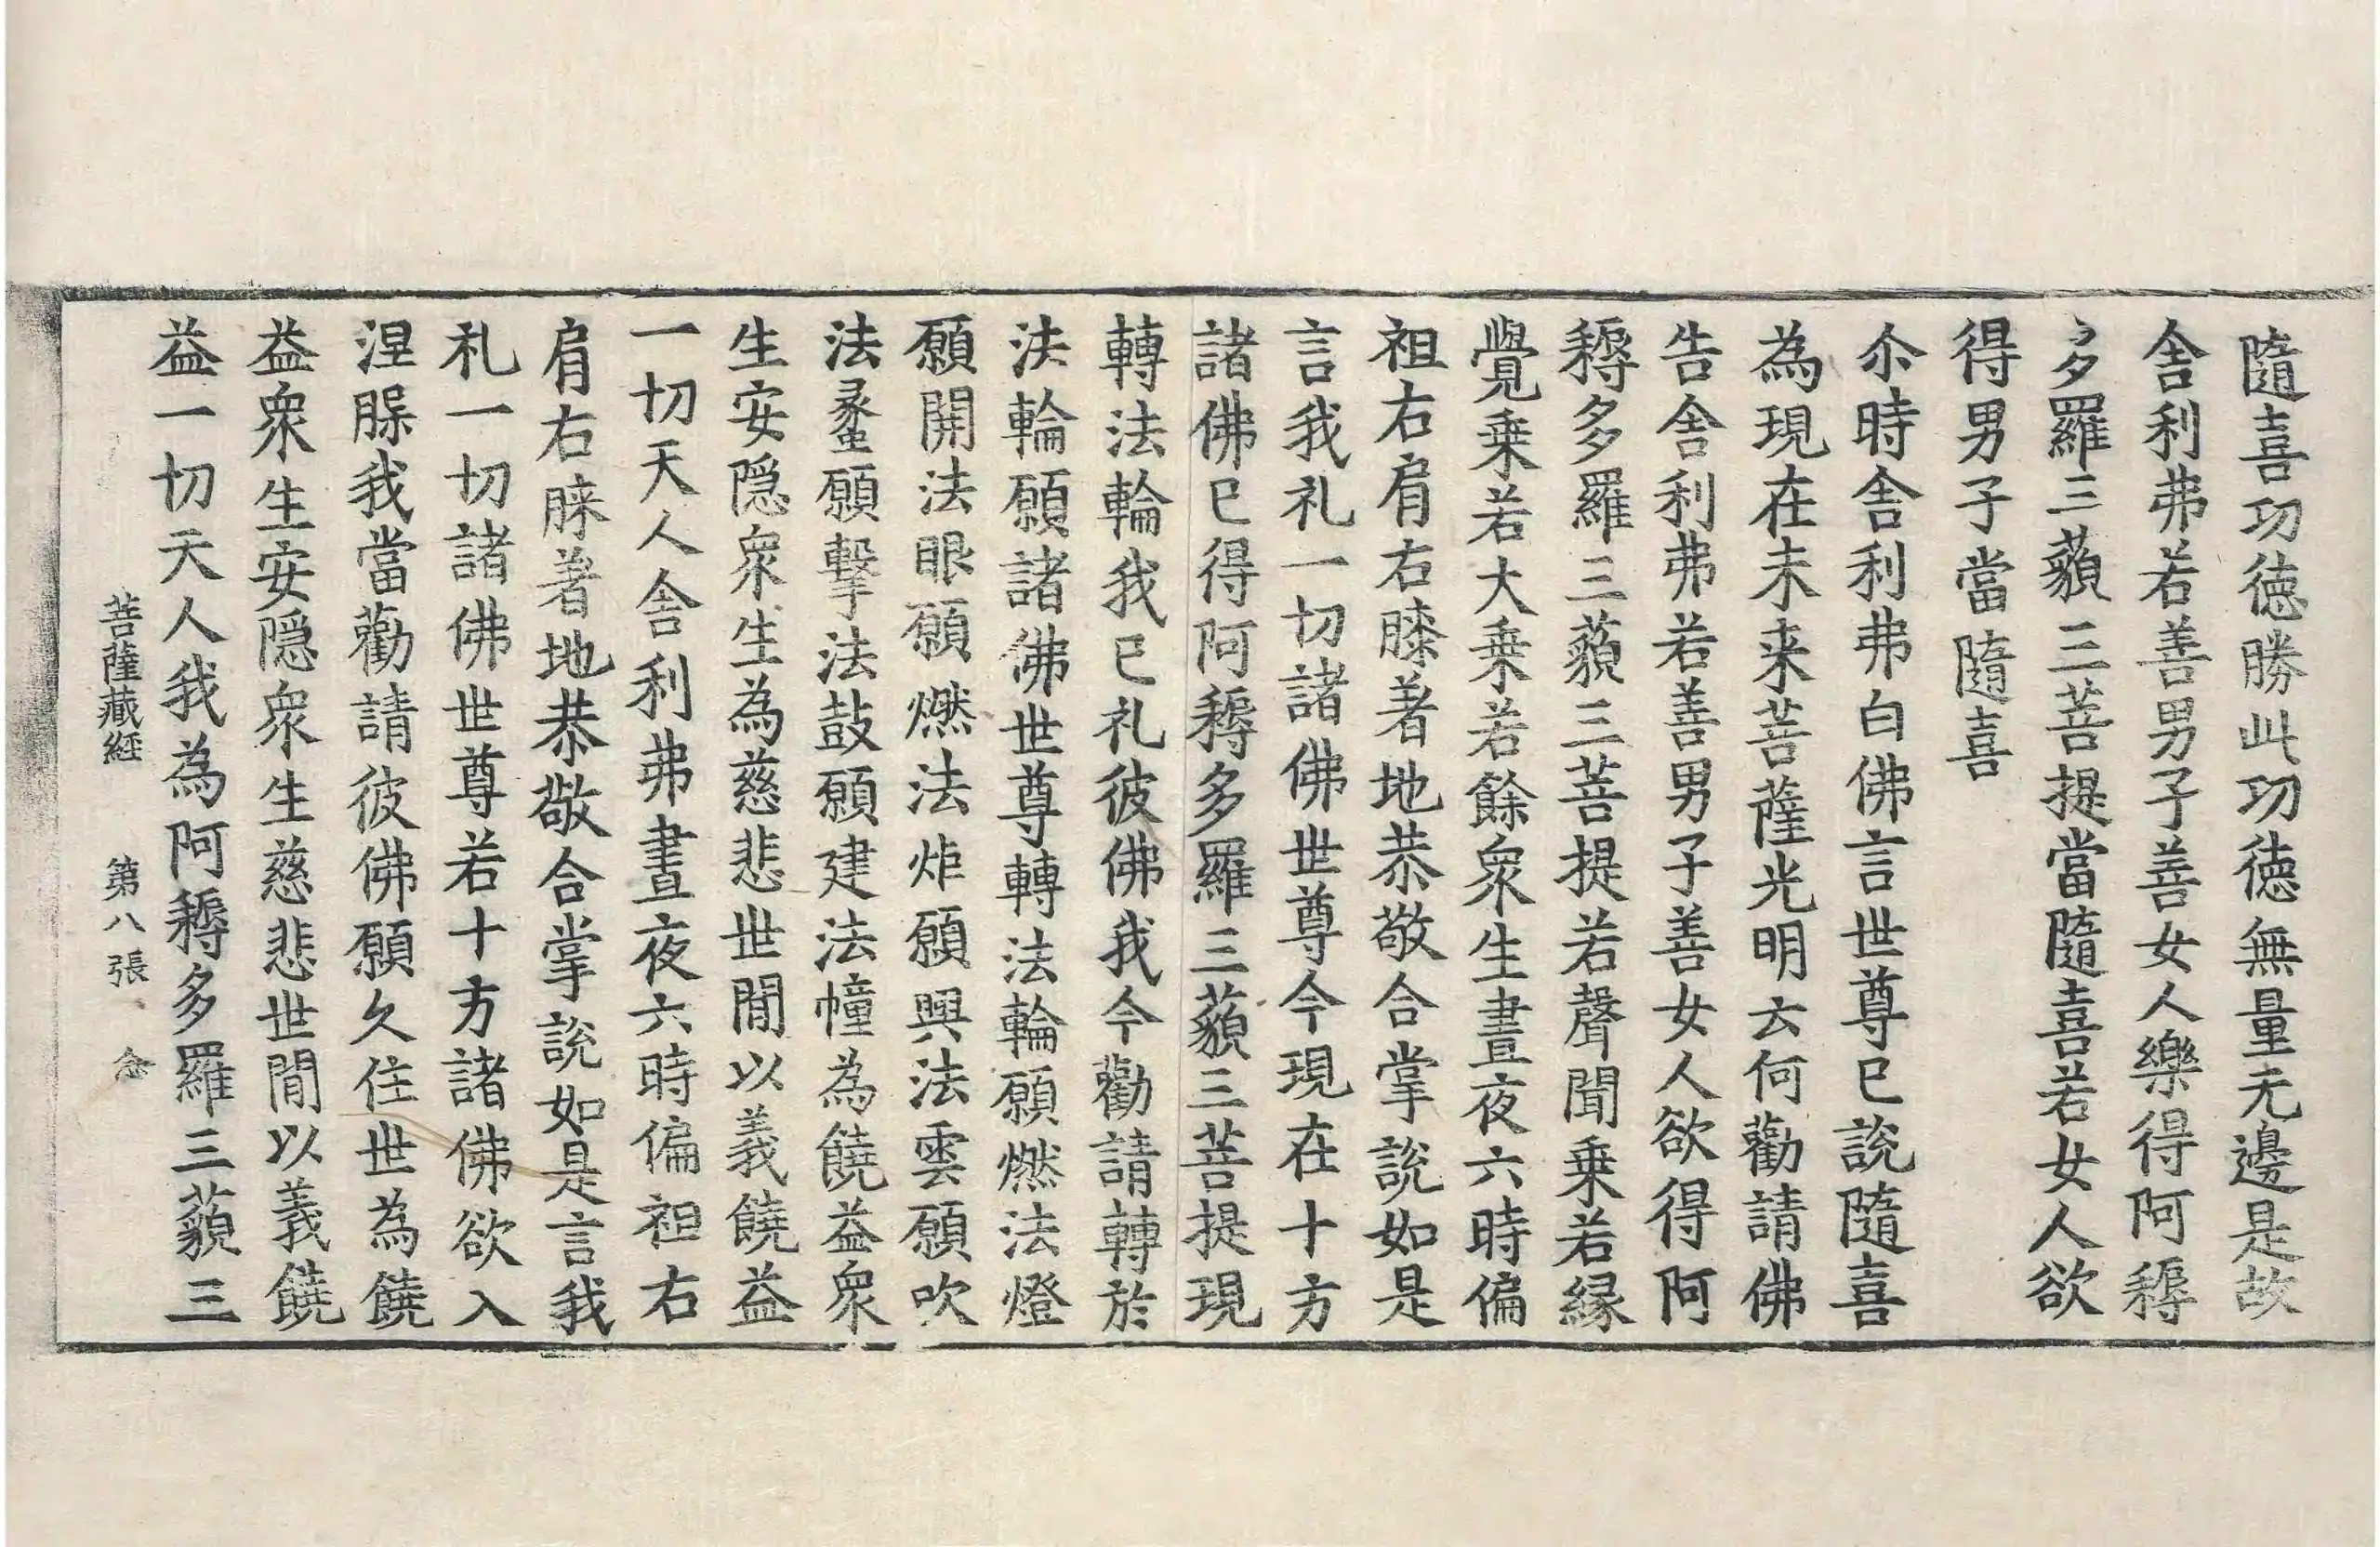 隨喜功德勝此功德無量无邊是故
舍利弗若善男子善女人樂得阿耨
多羅三藐三菩提當隨喜若女人欲
得男子當隨喜
尒時舍利弗白佛言世尊已說隨喜
為現在未来菩薩光明云何勸請佛
告舍利弗若善男子善女人欲得阿
耨多羅三藐三菩提若聲聞乗若緣
覺乗若大乗若餘眾生晝夜六時偏
袒右肩右膝著地恭敬合掌說如是
言我礼一切諸佛世尊今現在十方
諸佛已得阿耨多羅三藐三菩提現
轉法輪我已礼彼佛我今勸請轉於
法輪願諸佛世尊轉法輪願燃法燈
願開法眼願燃法炬願興法雲願吹
法蠡願擊法鼓願建法幢為饒益衆
生安隠衆生為慈悲世間以義饒益
一切天人舍利弗晝夜六時偏袒右
肩右膝著地恭敬合掌說如是言我
礼一切諸佛世尊若十方諸佛欲入
涅槃我當勸請彼佛願久住世為饒
益衆生安隠衆生慈悲世間以義饒
益一切天人我為阿耨多羅三藐三
菩薩藏経 第八張 念